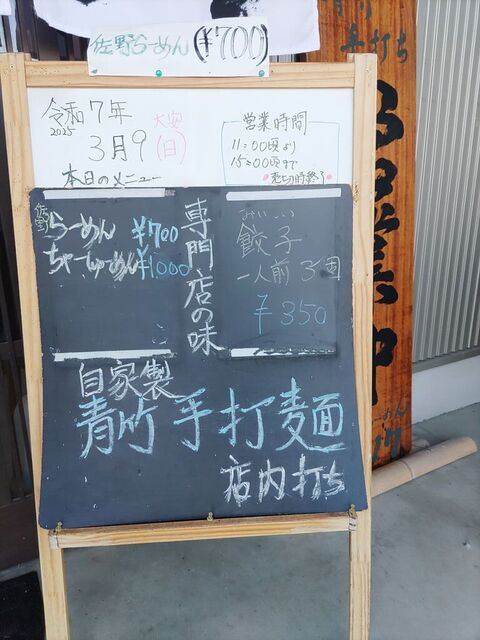 佐野らーめん(¥700)
令和7年
2025
3月9(日)
大安
本日のメニュー
営業時間
11:00頃より
15:00頃まで
売切時終了
佐野らーめん ¥700
ちゃーしゅーめん ¥1000
専門店の味
おいしい
餃子
一人前3個
¥350
自家製
青竹手打麺
店内打ち
手打ち
営業中